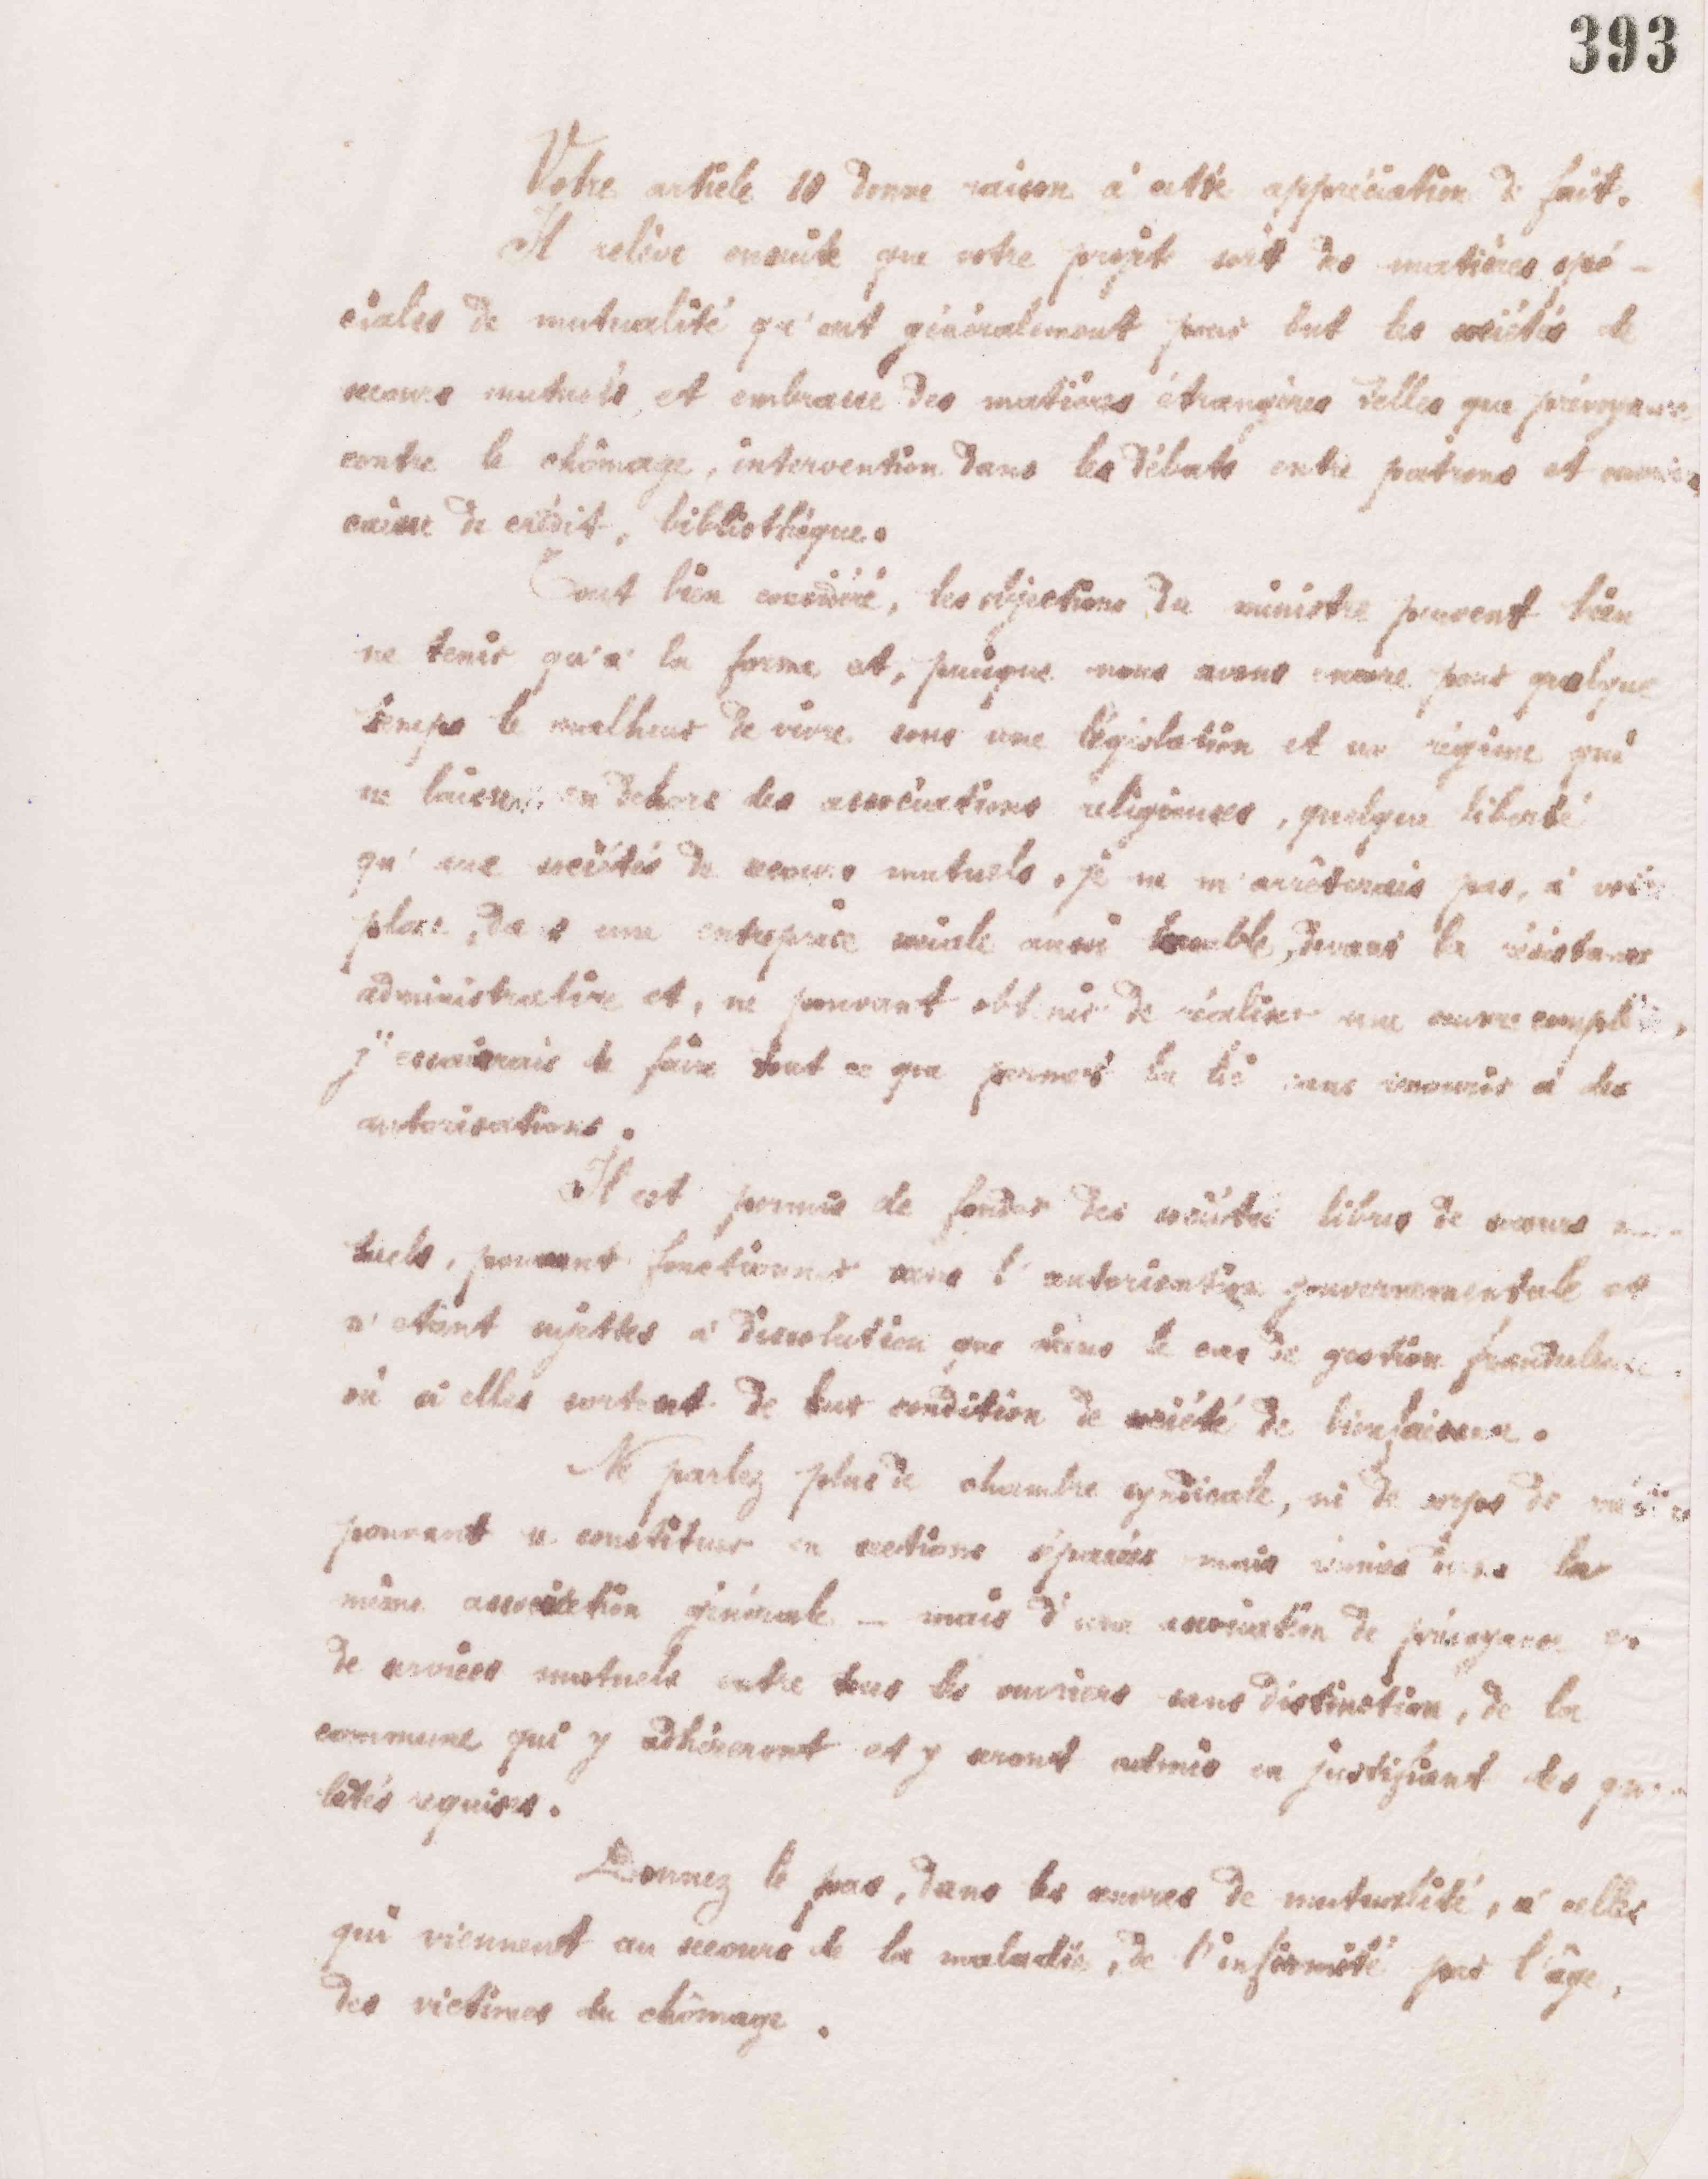 393
Votre article 10 donne raison à cette appréciation de fait.
Il relève ensuite que votre projet sort des matières spé-
ciales de mutualité qu'ont généralement pour but les sociétés de
secours mutuels et embrasse des matières étrangères telles que prévoyance
contre le chômage, intervention dans les débats entre patrons et ouvriers
caisse de crédit, bibliothèque.
Tout bien considéré, les objections du ministre peuvent bien
ne tenir qu'à la forme et, puisque nous avons encore pour quelque
temps le malheur de vivre sous une législation et un régime qui
ne laissent en dehors des associations religieuses, quelque liberté
qu'aux sociétés de secours mutuels, je ne m'arrêterais pas, à votre
place, dans une entreprise sociale aussi louable, devant la résistance
administrative et, ne pouvant obtenir de réaliser une œuvre complète,
j'essaierais de faire tout ce que permet la loi sans recourir à des
autorisations.
Il est permis de fonder des sociétés libres de secours mu-
tuels, pouvant fonctionner sans l'autorisation gouvernementale et
n'étant sujettes à dissolution que dans le cas de gestion frauduleuse
où si elles sortent de leur condition de société de bienfaisance.
Ne parlez plus de chambre syndicale, ni de corps de métiers
pouvant se constituer en sections séparées mais réunies dans la
même association générale - mais d'une association de prévoyance et
de services mutuels entre tous les ouvriers sans distinction, de la
commune qui y adhéreront et y seront admis en justifiant des qua-
lités requises.
Donnez le pas, dans les œuvres de mutualité, à celles
qui viennent au secours de la maladie, de l'infirmité par l'âge,
des victimes du chômage.